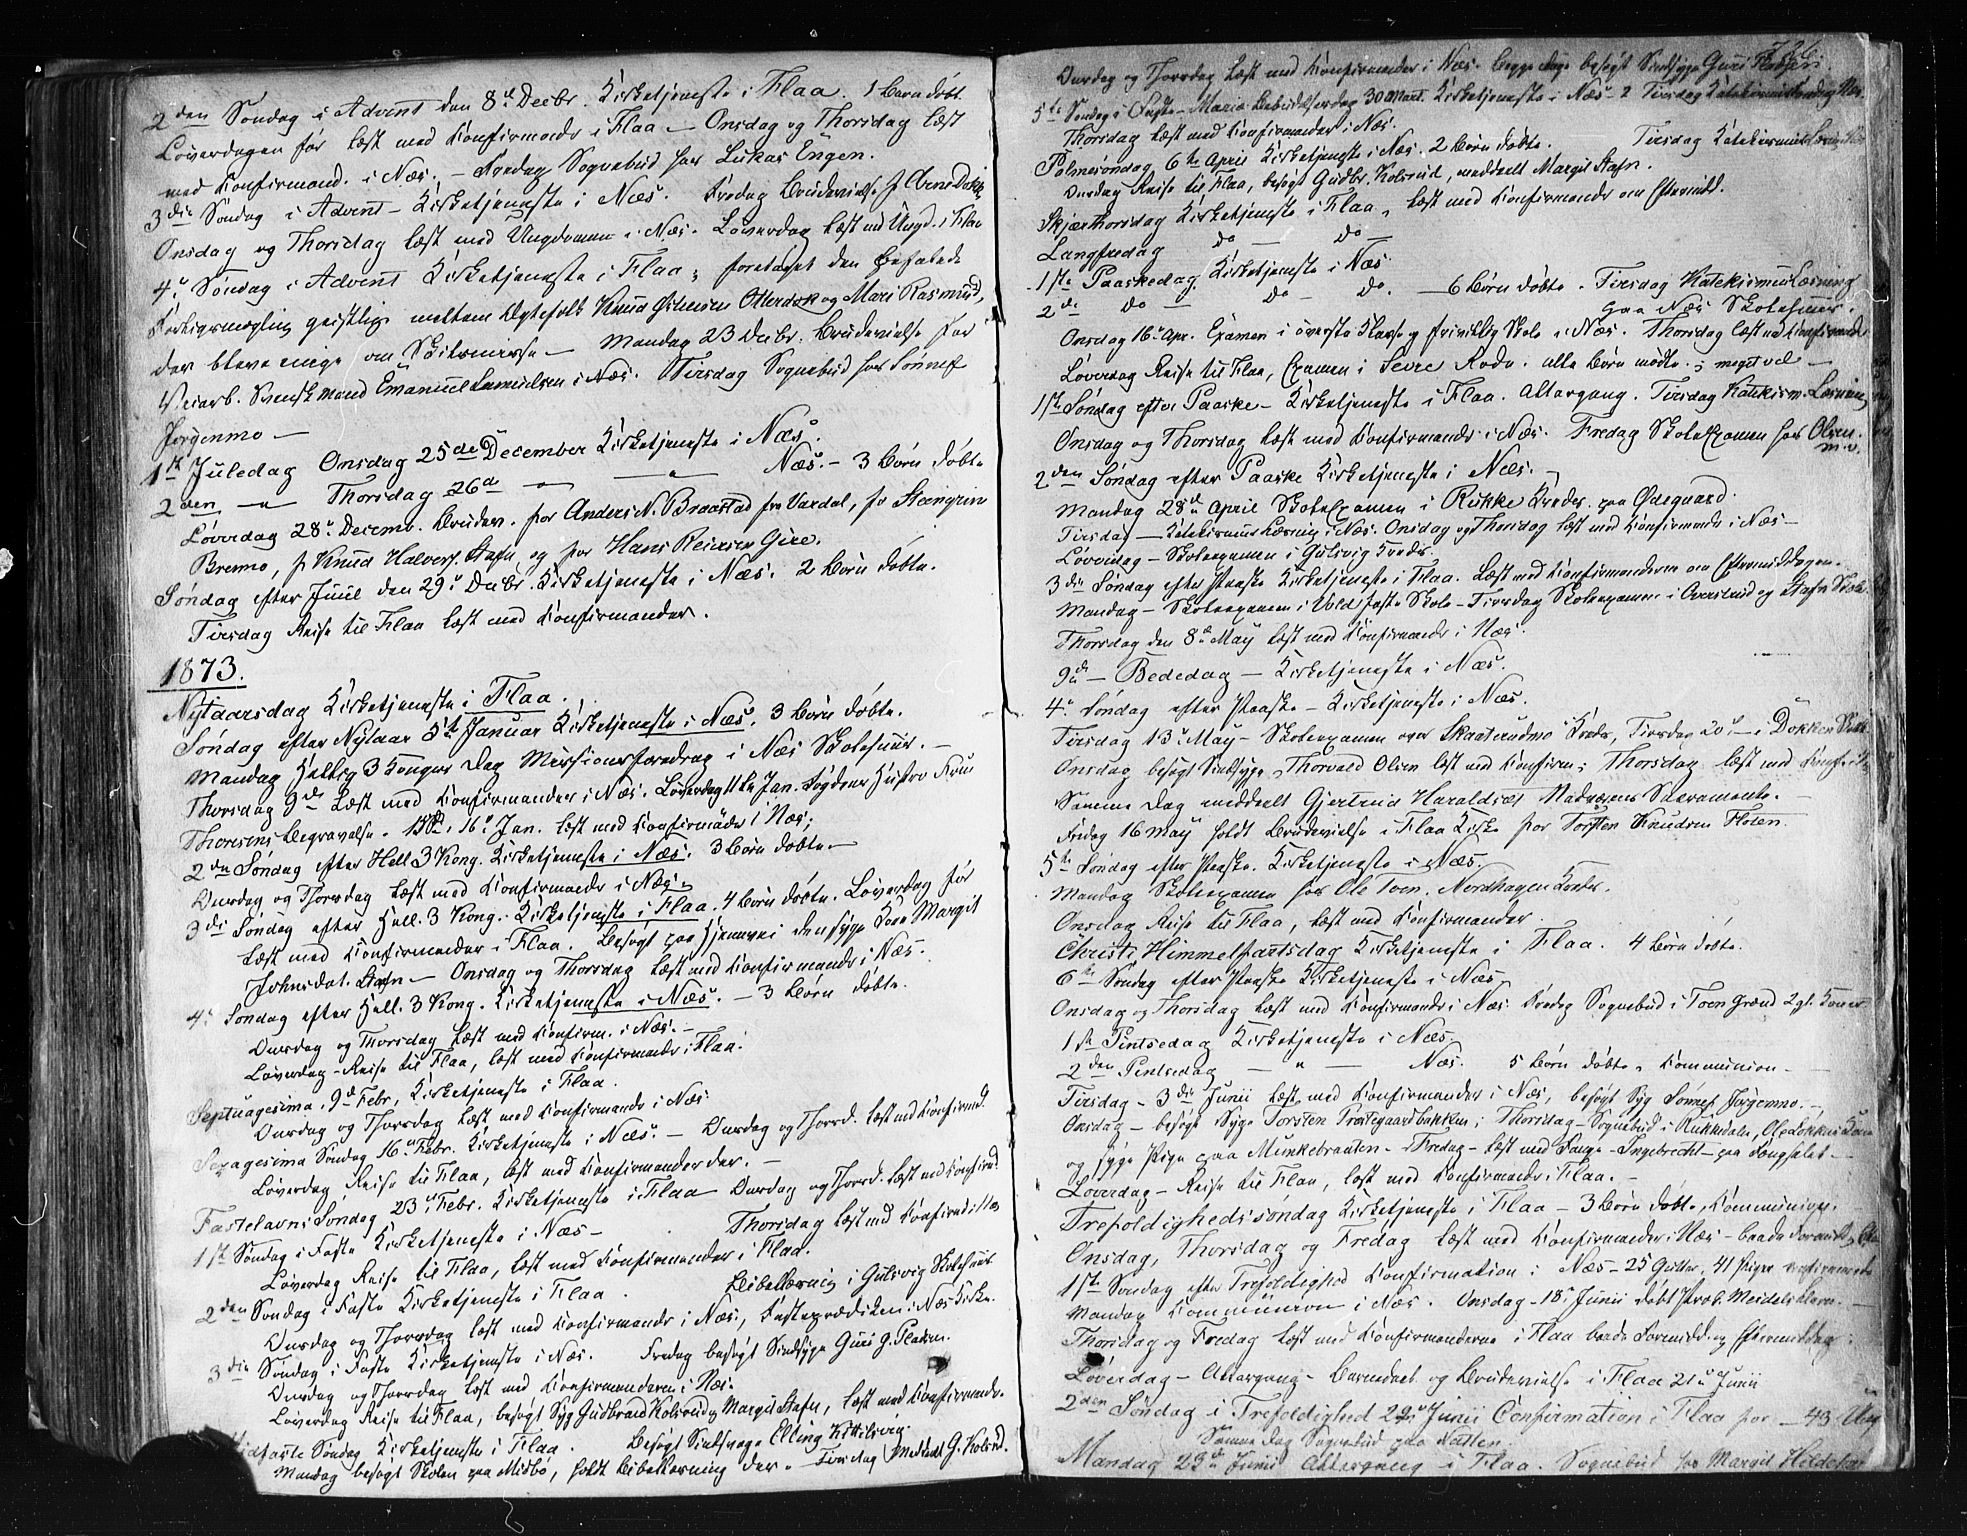 2den Søndag i Advent den 8de Decbr. Kirketjeneste i Flaa. 1 Barn døbt.
Løverdagen før læst med Konfirmander i Flaa – Onsdag og Thorsdag læst
med Konfirmand. i Næs. – Fredag Sognebud hos Lukas Engen.
3die Søndag i Advent – Kirketjeneste i Næs. Fredag Brudevielse f. Arne
Onsdag og Thorsdag læst med Ungdommen i Næs. Løverdag læst med Ungd. i Flaa
4de Søndag i Advent Kirketjeneste i Flaa; foretaget den befalede
Forligsmægling geistlig mellem Ægtefolk Knud Otterdok og Mari Rasmusd,
der bleve enige om Skilsmisse – Mandag 23 Decbr. Brudevielse for
Veiarb. Svensk mand Emanuel Samuelsen i Næs. Tirsdag Sognebud hos Sønnef
Jørgenmo –
1ste Juledag Onsdag 25de December Kirketjeneste i Næs.
2den – " – Thorsdag 26de – " – Næs. – 3 Børn døbte
Løverdag 28de Decemb. Brudev. for Anders N. Braastad fra Vardal, for Steingrim
Bremo, f. Knud Halvors. Stafn og for Hans Reiersen Gire.
Søndag efter Juul den 29de Decbr. Kirketjeneste i Næs. 2 Børn døbte.
Tirsdag Reise til Flaa læst med Konfirmander.
1873.
Nytaarsdag Kirketjeneste i Flaa.
Søndag efter Nytaar 5te Januar Kirketjeneste i Næs. 3 Børn døbte.
Mandag Hellig 3 Kongers Dag Missionsforedrag i Næs Skolehuus. –
Thorsdag 9de læst med Konfirmander i Næs. Løverdag 11te Jan. Fogdens Hustro Frue
Thoresens Begravelse. 15de, 16de Jan. læst med Konfirmander i Næs;
2den Søndag efter Hell 3 Kong. Kirketjeneste i Næs. 3 Børn døbte –
Onsdag og Thorsdag læst med Konfirmander i Næs.
3die Søndag efter Hell. 3 Kong. Kirketjeneste i Flaa. 4 Børn døbte. Løverdag før
læst med Konfirmander i Flaa. Besøgt paa Hjemvei den syge Kone Margit
Johnsdat. Stafn – Onsdag og Thorsdag læst med Konfirmander i Næs.
4de Søndag efter Hell. 3 Kong. Kirketjeneste i Næs. – 3 Børn døbte.
Onsdag og Thorsdag læst med Konfirm. i Næs. –
Løverdag – Reise til Flaa, læst med Konfirmander i Flaa.
Septuagesima, 9de Febr, Kirketjeneste i Flaa.
Onsdag og Thorsdag læst med Konfirmander i Næs.
Sexagesima Søndag 16de Febr. Kirketjeneste i Næs. – Onsdag og Thorsd. læst med Konfirmd.
Løverdag Reise til Flaa, læst med Konfirmander der. –
Fastelavns Søndag 23de Febr. Kirketjeneste i Flaa Onsdag og Thorsd. læst med Konfirmd
1ste Søndag i Faste Kirketjeneste i Næs – Thorsdag læst med Konfirmd i Næs
Løverdag Reise til Flaa, læst med Konfirmander i Flaa.
2den Søndag i Faste Kirketjeneste i Flaa. Bibellæsning i Gulsvig Skolehuus
Onsdag og Thorsdag læst med Konfirmander i Næs, Fasteprædiken i Næs Kirke.
3die Søndag i Faste Kirketjeneste i Næs. Fredag besøgt Sindsyge Guri G.
Onsdag og Thorsdag læst med Konfirmanderne i Næs.
Løverdag Reise til Flaa, besøgt Syg Gudbrand Kolsrud og Margit Stafn, læst med Konfirmander
Midfaste Søndag Kirketjeneste i Flaa. Besøgt Sindsvage Elling Kittilsvig
Mandag besøgt Skolen paa Midbø, holdt Bibellæsning der. Tirsdag meddelt G. Kolsrud.
Onsdag og Thorsdag læst med Konfirmander i Næs. begge Dage besøgt Sindsyge Guri
5te Søndag i Faste – Mariæ Bebudelsesdag 30 Mart. Kirketjeneste i Næs – 2 Tirsdag Katekismuslæsning Næs
Thorsdag læst med Konfirmander i Næs.
Palmesøndag 6te April Kirketjeneste i Næs. 2 Børn døbte. Tirsdag Katekismuslæsning
Onsdag Reise til Flaa, besøgt Gudbr. Kolsrud, meddeelt Margit Stafn.
Skjærthorsdag Kirketjeneste i Flaa, læst med Konfirmander om Eftermidd.
Langfredag do – do –
1ste Paaskedag Kirketjeneste i Næs.
2de do – do – do. – 6 Børn døbte. Tirsdag Katekismuslæsning
paa Næs Skolehuus.
Onsdag 16de Apr. Examen i øverste Klasse og frivillig Skole i Næs. Thorsdag læst med Konfirmander
Løverdag Reise til Flaa, Examen i Sevre Rode. alle Børn mødte; meget vel –
1ste Søndag efter Paaske – Kirketjeneste i Flaa. Altergang. Tirsdag Katekism. Læsning
Onsdag og Thorsdag læst med Konfirmander i Næs. Fredag Skoleexamen hos Olsen.
2den Søndag efter Paaske Kirketjeneste i Næs. –
Mandag 28de April Skoleexamen i Rukke Kreds. paa Ødegaard.
Tirsdag – Katekismuslæsning i Næs. Onsdag og Thorsdag læst med Konfirmander i Næs –
Løverdag – Skoleexamen i Gulsvig Kreds.
3die Søndag efter Paaske Kirketjeneste i Flaa. Læst med Konfirmanderne om Eftermiddagen.
Mandag – Skoleexamen i Vold faste Skole – Tirsdag Skoleexamen i Aveslrud og Stafn Skole.
Thorsdag den 8de May læst med Konfirmander i Næs.
9de – Bededag – Kirketjeneste i Næs.
4de Søndag efter Paaske – Kirketjeneste i Næs.
Tirsdag 13de May – Skoleexamen over Skaaterudmo Kreds, Tirsdag 20de – i Dokken
Onsdag besøgt Sindsyge Thorvald Olsen læst med Konfirm; Thorsdag læst med Konf. i Næs
Samme Dag meddeelt Gjertrud Haraldset Nadverens Sacramente. –
Fredag 16 May holdt Brudevielse i Flaa Kirke for Torsten Knudsen Holen.
5te Søndag efter Paaske. Kirketjeneste i Næs.
Mandag Skoleexamen hos Ole Toen. Nordhagen Kreds.
Onsdag Reise til Flaa, læst med Konfirmander.
Christi Himmelfartsdag Kirketjeneste i Flaa. 4 Børn døbte.
6te Søndag efter Paaske Kirketjeneste i Næs
Onsdag og Thorsdag læst med Konfirmander i Næs. Fredag Sognebud i Toen Grend 2 gl. Koner
1ste Pintsedag Kirketjeneste i Næs.
2den Pintsedag – " – Næs. 5 Børn døbte. Kommunion –
Tirsdag – 3die Junii læst med Konfirmander i Næs, besøgt Syg Sønnef Jørgenmo. –
Onsdag – besøgt Syge Torsten Præstegaardbakken; Thorsdag – Sognebud i Rukkedalen, Ole Dokkens Kone
og syge Pige paa Munkebraaten – Fredag – læst med Fange – Ingebrecht – paa Fængslet –
Løverdag – Reise til Flaa, læst med Konfirmander i Flaa. –
Trefoldighedssøndag Kirketjeneste i Flaa – 3 Børn døbte, Kommunion.
Onsdag, Thorsdag og Fredag læst med Konfirmander i Næs – baade Formidd. og
1ste Søndag efter Trefoldighed Konfirmation i Næs – 25 Gutter, 41 Piger confirmerede
Mandag Kommunion i Næs. Onsdag – 18de Junii døbt Prok. Meidels Barn. –
Thorsdag og Fredag læst med Konfirmanderne i Flaa baade Formidd. og Eftermiddag.
Løverdag – Altergang – Barnedaab og Brudevielse i Flaa 21de Junii
2den Søndag i Trefoldighed 22de Junii Confirmation i Flaa for – 43 Ung
Samme Dag Sognebud paa Natten
Mandag 23de Junii Altergang i Flaa. Sognebud hos Margit